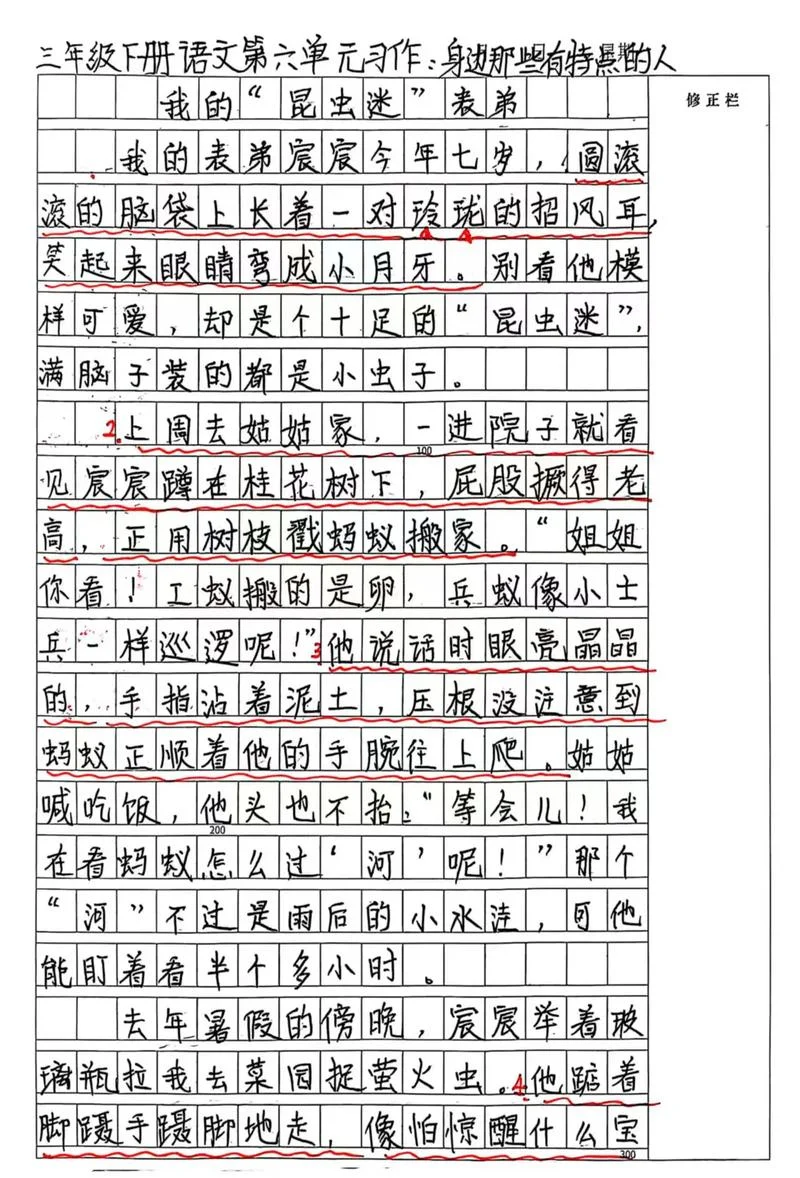 三年级下册语文第六单元习作:身边那些有特点的人
修正栏
我的“昆虫迷”表弟
我的表弟宸宸今年七岁,圆滚
滚的脑袋上长着一对玲珑的招风耳,
笑起来眼睛弯成小月牙。别看他模
样可爱,却是个十足的“昆虫迷”,
满脑子装的都是小虫子。
2.上周去姑姑家,一进院子就看
100
见宸宸蹲在桂花树下,屁股撅得老
高,正用树枝戳蚂蚁搬家。“姐姐
你看!工蚁搬的是卵,兵蚁像小士
兵一样巡逻呢!”3他说话时眼亮晶晶
的,手指沾着泥土,压根没注意到
蚂蚁正顺着他的手腕往上爬。姑姑
喊吃饭,他头也不抬:“等会儿!我
200
在看蚂蚁怎么过‘河’呢!”那个
“河”不过是雨后的小水洼,可他
能盯着看半个多小时。
去年暑假的傍晚,宸宸举着玻
璃瓶拉我去菜园捉萤火虫。4.他踮着
脚蹑手蹑脚地走,像怕惊醒什么宝
300